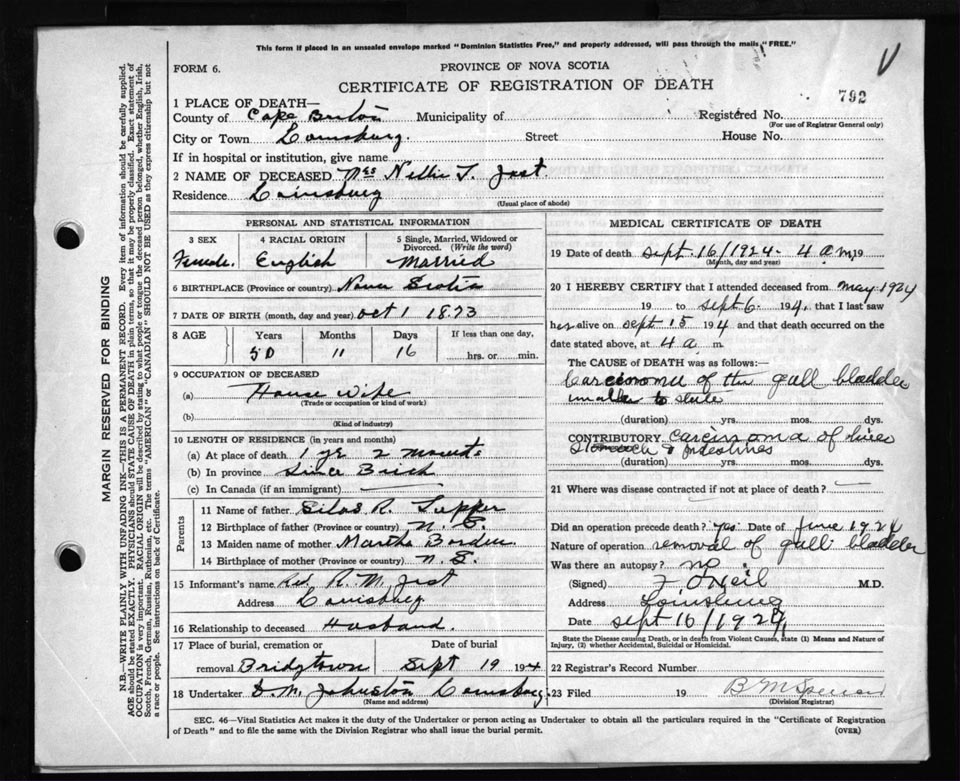 This form if placed in an unsealed envelope marked "Dominion Statistics Free," and properly addressed, will pass through the mails "FREE."
FORM 6.
PROVINCE OF NOVA SCOTIA
CERTIFICATE OF REGISTRATION OF DEATH
792
1 PLACE OF DEATH—
County of Cape Breton Municipality of Registered No.
(For use of Registrar General only)
City or Town Louisburg. Street House No.
If in hospital or institution, give name
2 NAME OF DECEASED Mrs Nellie T. Jost.
Residence Louisburg
(Usual place of abode)
PERSONAL AND STATISTICAL INFORMATION
3 SEX 4 RACIAL ORIGIN 5 Single, Married, Widowed or Divorced. (Write the word)
Female. English Married
6 BIRTHPLACE (Province or country) Nova Scotia
7 DATE OF BIRTH (month, day and year) Oct 1 1873
8 AGE Years Months Days If less than one day,
50 11 16 hrs. or min.
9 OCCUPATION OF DECEASED
(a) House wife
(Trade or occupation or kind of work)
(b)
(Kind of industry)
10 LENGTH OF RESIDENCE (in years and months)
(a) At place of death 1 yr 2 months
(b) In province Since Birth
(c) In Canada (if an immigrant)
Parents
11 Name of father Silas R. Tupper
12 Birthplace of father (Province or country) N. S.
13 Maiden name of mother Martha Borden
14 Birthplace of mother (Province or country) N. S.
15 Informant's name Rev. R. M. Jost
Address Louisburg
16 Relationship to deceased Husband.
17 Place of burial, cremation or removal Bridgtown Date of burial Sept 19 1924
18 Undertaker D. M. Johnston Louisburg.
(Name and address)
MEDICAL CERTIFICATE OF DEATH
19 Date of death Sept. 16/1924- 4 a m 19
(Month, day and year)
20 I HEREBY CERTIFY that I attended deceased from May 1924
19 to Sept 6 1924, that I last saw
her alive on Sept 15 1924 and that death occurred on the
date stated above, at 4 a m.
The CAUSE of DEATH was as follows:
Carcinoma of the gall bladder
unable to state
(duration) yrs. mos. dys.
CONTRIBUTORY carcinoma of liver
Stomach & Intestines
(duration) yrs. mos. dys.
21 Where was disease contracted if not at place of death?
Did an operation precede death? Yes Date of June 1924
Nature of operation removal of gall bladder
Was there an autopsy? no
(Signed) F O'Neil M.D.
Address Louisburg
Date Sept 16/1924
State the Disease causing Death, or in death from Violent Causes, state (1) Means and Nature of Injury, (2) whether Accidental, Suicidal or Homicidal.
22 Registrar's Record Number
23 Filed 19 B M Spencer
(Division Registrar)
SEC. 46—Vital Statistics Act makes it the duty of the Undertaker or person acting as Undertaker to obtain all the particulars required in the "Certificate of Registration
of Death" and to file the same with the Division Registrar who shall issue the burial permit.
(OVER)
MARGIN RESERVED FOR BINDING
N.B.—WRITE PLAINLY WITH UNFADING INK—THIS IS A PERMANENT RECORD. Every item of information should be carefully supplied.
AGE should be stated EXACTLY. PHYSICIANS should STATE CAUSE OF DEATH in plain terms, so that it may be properly classified. Exact statement of
OCCUPATION is very important. RACIAL ORIGIN will be described by stating to what people or tongue the deceased person belonged, whether English, Irish,
Scotch, French, German, Russian, Ruthenian, etc. The terms "AMERICAN" or "CANADIAN" SHOULD NOT BE USED as they express citizenship but not
a race or people. See instructions on back of Certificate.